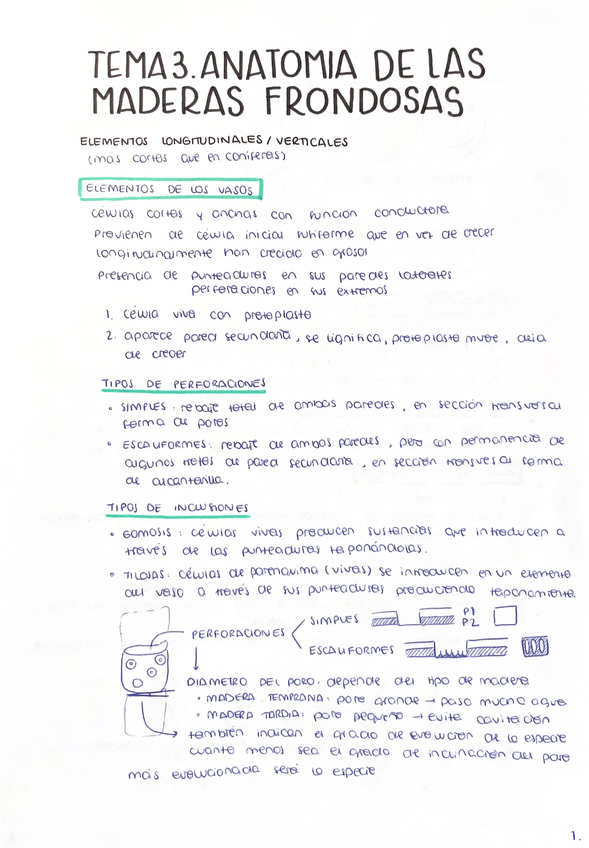 TEMA 3. ANATOMIA DE LAS
MADERAS FRONDOSAS
ELEMENTOS LONGITUDINALES / VERTICALES
(mas cortos que en coniferas)
ELEMENTOS DE LOS VASOS
células cortas y anchas con función conductora
Previenen de célula inicial fusiforme que en vez de crecer
longitudinalmente han crecido en grosor
Presencia de punteaduras en sus paredes laterales
perforaciones en sus extremos
1. célula viva con protoplasto
2. aparece pared secundaria, se lignifica, protoplasto muere, deja
de crecer
TIPOS DE PERFORACIONES
• SIMPLES: rebaje total de ambas paredes, en sección transversal
forma de poros
• ESCALIFORMES: rebaje de ambas paredes, pero con permanencia de
algunos restos de pared secundaria, en sección transversal forma
de alcantarilla.
TIPOS DE INCLUSIONES
• GOMOSIS: células vivas producen sustancias que introducen a
través de las punteaduras taponándolas.
• TILOSAS: células de parenquima (vivas) se introducen en un elemento
del vaso a través de sus punteaduras produciendo taponamiento.
PERFORACIONES
SIMPLES P1
P2
ESCALIFORMES
DIAMETRO DEL PORO: depende del tipo de madera
• MADERA TEMPRANA: poro grande → paso mucho agua
• MADERA TARDIA: poro pequeño → evita cavitación
también indican el grado de evolución de la especie
cuanto menos sea el grado de inclinación del poro
más evolucionada será la especie
1.